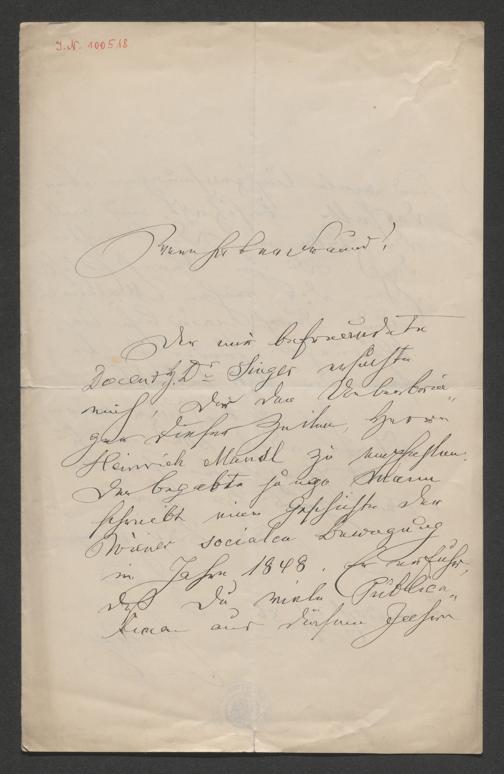 J.N. 100518
Verehrter Freund!
Der mir befreundete
Docent Dr. Singer ersuchte
mich, Dir den Ueberbrin-
ger dieser Zeilen, Herrn
Heinrich Mandl zu empfehlen.
Der begabte junge Mann
schreibt eine Geschichte der
Wiener socialen Bewegung
im Jahre 1848. Er erfuhr,
daß Du viele Publica-
tionen aus diesem Jahre